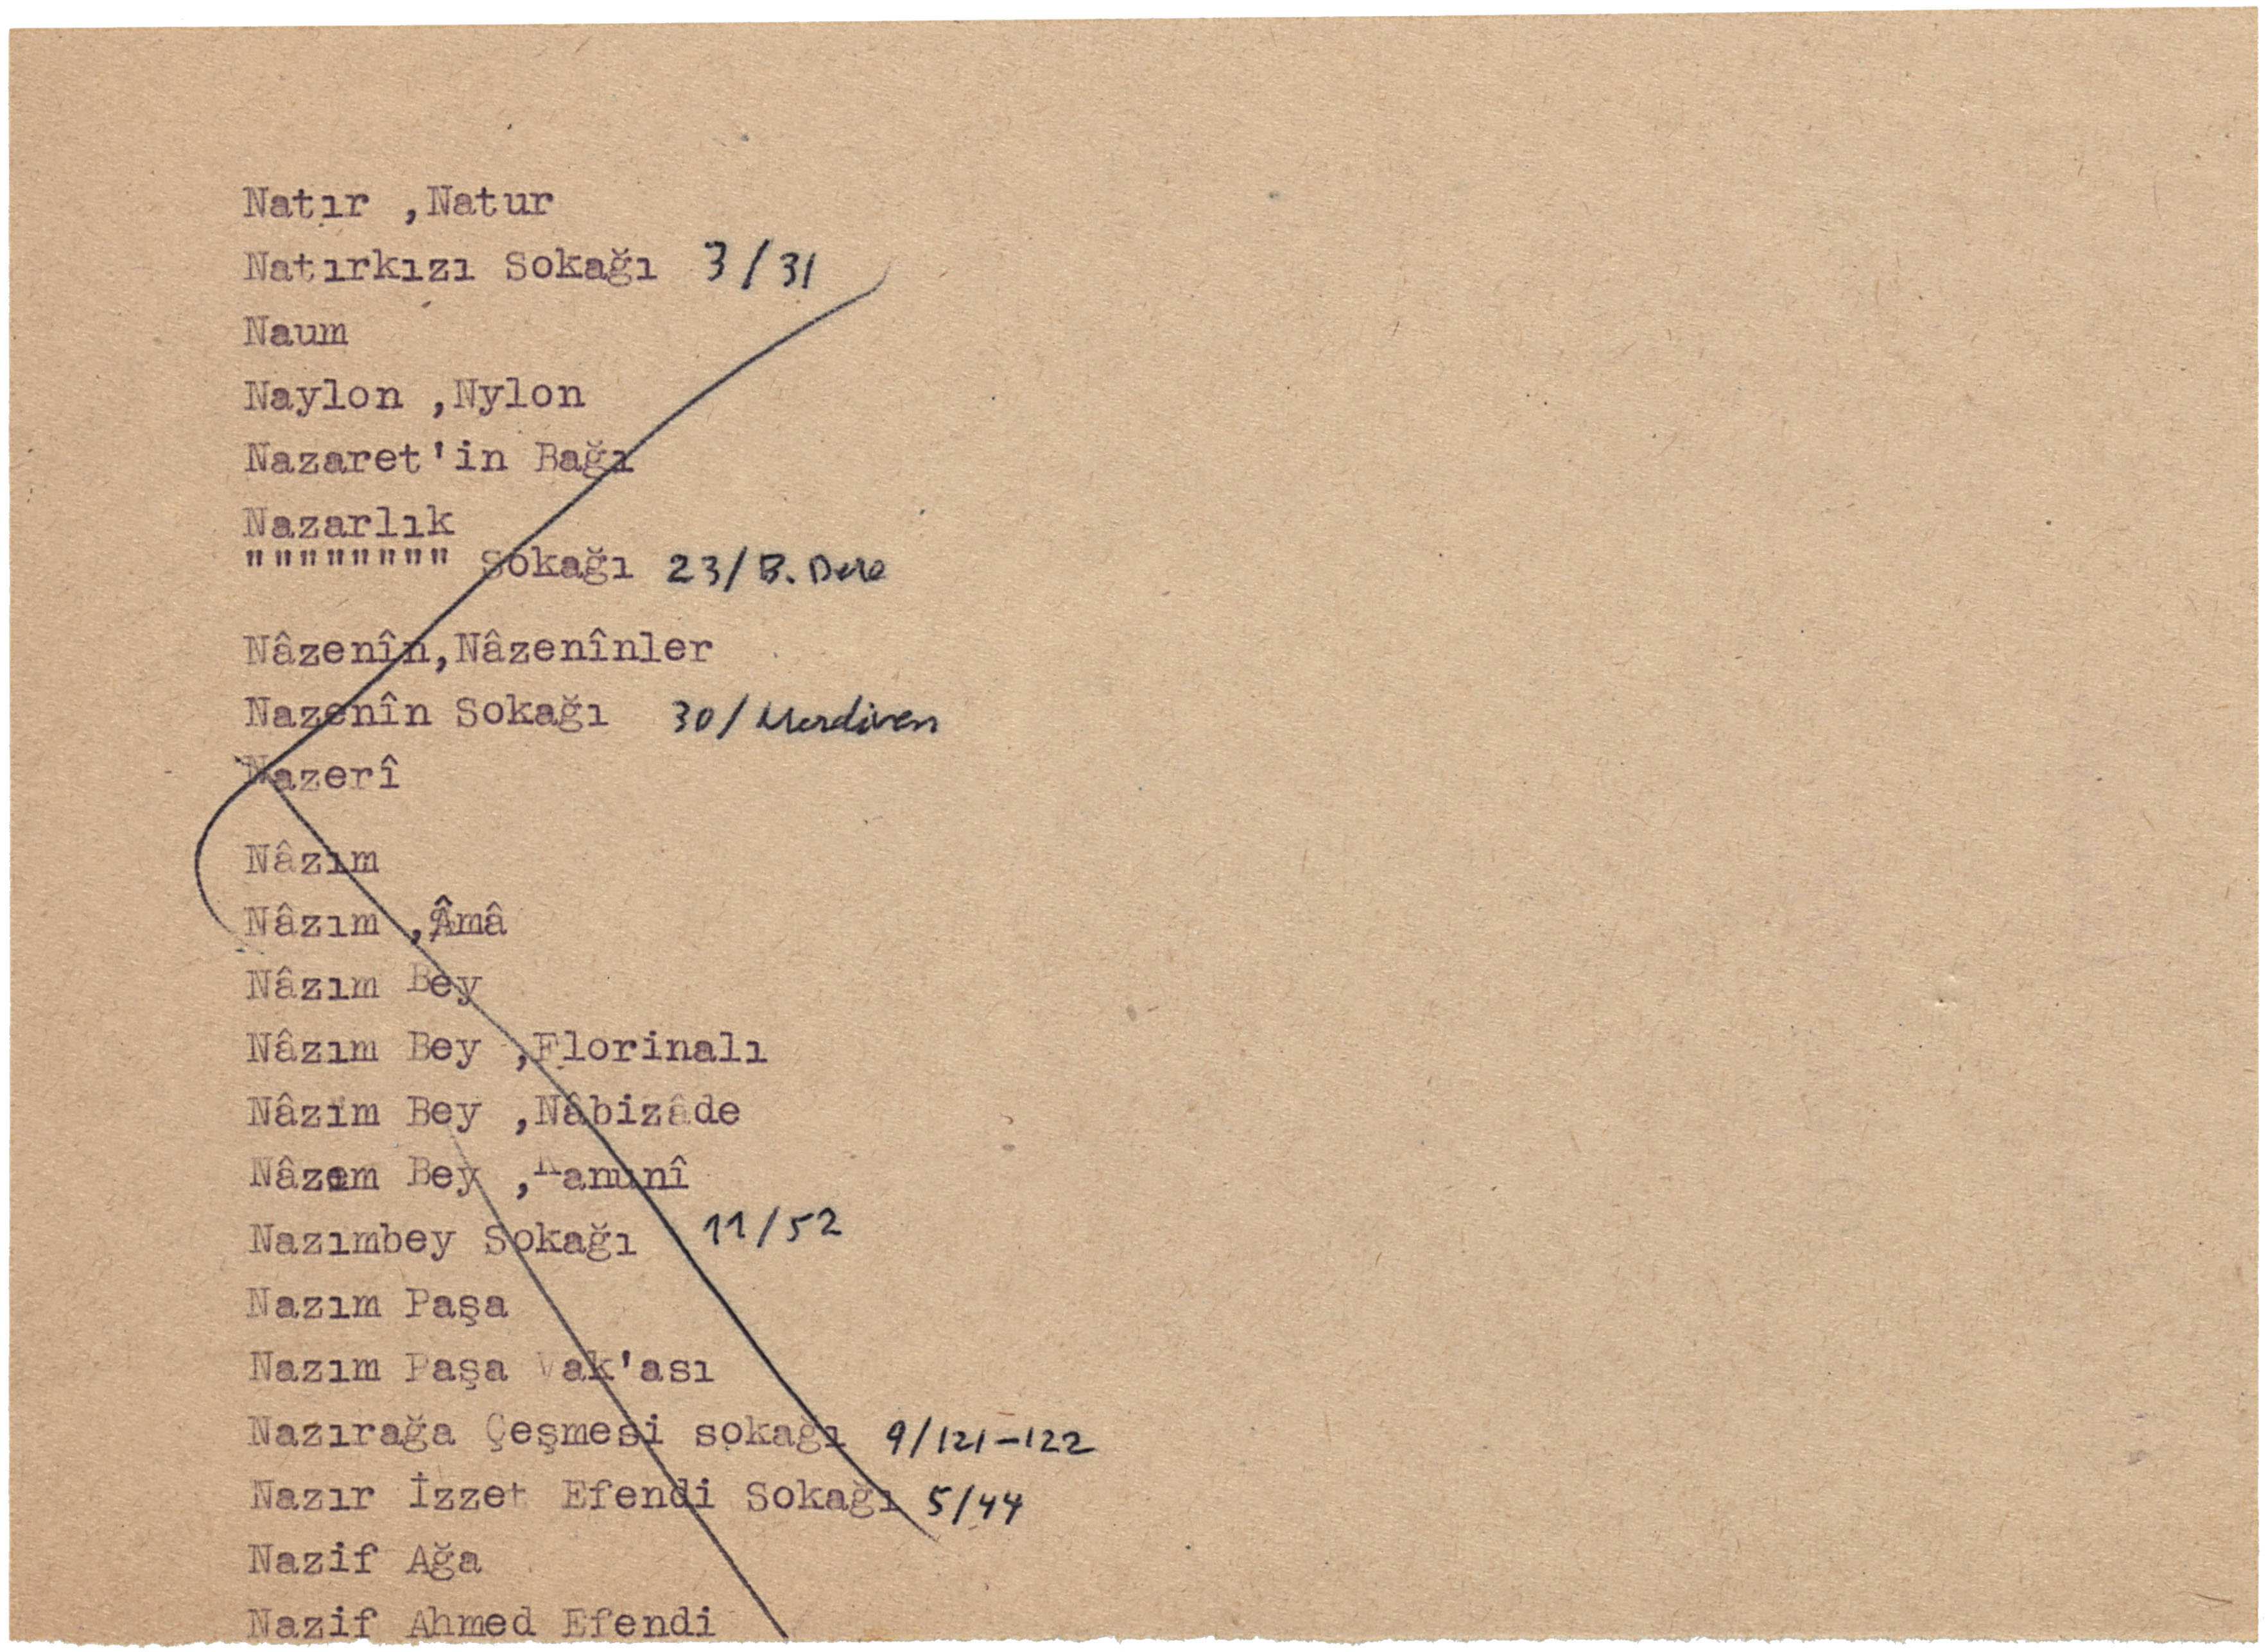 Natır ,Natur
Natırkızı Sokağı 3/31
Naum
Naylon ,Nylon
Nazaret'in Bağı
Nazarlık
"""""""" Sokağı 23/B. Dere
Nâzenîn,Nâzenînler
Nazenîn Sokağı 30/Merdiven
Nazerî
Nâzım
Nâzım ,Âmâ
Nâzım Bey
Nâzım Bey ,Florinalı
Nâzım Bey ,Nâbizâde
Nâzım Bey ,Kanunî
Nazımbey Sokağı 11/52
Nazım Paşa
Nazım Paşa Vak'ası
Nazırağa Çeşmesi sokağı 9/121-122
Nazır İzzet Efendi Sokağı 5/44
Nazif Ağa
Nazif Ahmed Efendi